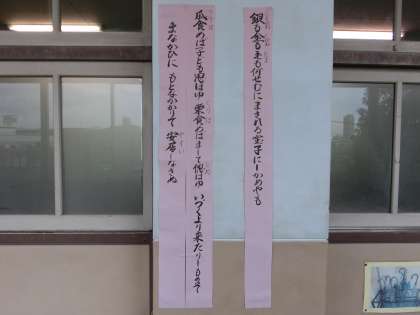 銀も金も玉も何せむにまされる宝子にしかめやも
瓜食めば子ども思ほゆ 栗食めばまして偲ばゆ いづくより来たりしものぞ
まなかひに もとなかかりて 安眠しなさぬ